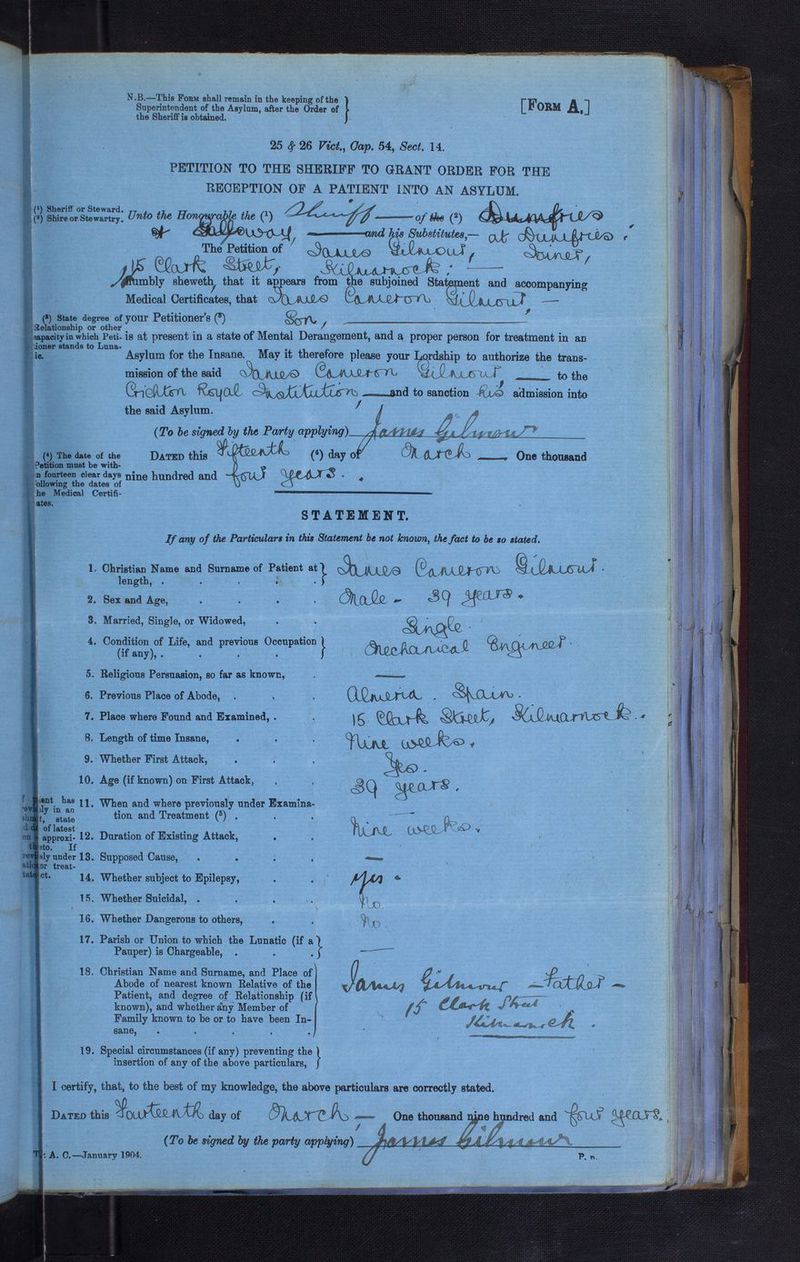 N.B.—This Form shall remain in the keeping of the
Superintendent of the Asylum, after the Order of
the Sheriff is obtained.
[Form A.]
25 & 26 Vict., Cap. 54, Sect. 14.
PETITION TO THE SHERIFF TO GRANT ORDER FOR THE
RECEPTION OF A PATIENT INTO AN ASYLUM.
(¹) Sheriff or Steward.
(²) Shire or Stewartry.
Unto the Honourable the (¹) Sheriff of the (²) Dumfries
& Galloway, and his Substitutes,— at Dumfries.
The Petition of James Gilmour, Joiner,
15 Clark Street, Kilmarnock;
Humbly sheweth, that it appears from the subjoined Statement and accompanying
Medical Certificates, that James Cameron Gilmour —
(³) State degree of
Relationship or other
capacity in which Peti-
tioner stands to Luna-
tic.
your Petitioner's (³) Son,
is at present in a state of Mental Derangement, and a proper person for treatment in an
Asylum for the Insane. May it therefore please your Lordship to authorize the trans-
mission of the said James Cameron Gilmour, to the
Crichton Royal Institution and to sanction his admission into
the said Asylum.
(To be signed by the Party applying) James Gilmour
(⁴) The date of the
Petition must be with-
n fourteen clear days
following the dates of
he Medical Certifi-
ates.
Dated this Fifteenth (⁴) day of March One thousand
nine hundred and four years.
STATEMENT.
If any of the Particulars in this Statement be not known, the fact to be so stated.
1. Christian Name and Surname of Patient at length, . James Cameron Gilmour.
2. Sex and Age, Male - 39 years.
3. Married, Single, or Widowed, Single.
4. Condition of Life, and previous Occupation (if any), . Mechanical Engineer.
5. Religious Persuasion, so far as known, —
6. Previous Place of Abode, Almeria. Spain.
7. Place where Found and Examined, . 15 Clark Street, Kilmarnock.
8. Length of time Insane, Nine weeks.
9. Whether First Attack, Yes.
10. Age (if known) on First Attack, 39 years.
ent has
ly in an
, state
of latest
approxi-
to. If
sly under
or treat-
ct.
11. When and where previously under Examina-
tion and Treatment (⁵) .
12. Duration of Existing Attack, Nine weeks.
13. Supposed Cause, —
14. Whether subject to Epilepsy, Yes
15. Whether Suicidal, . No
16. Whether Dangerous to others, No
17. Parish or Union to which the Lunatic (if a
Pauper) is Chargeable, . —
18. Christian Name and Surname, and Place of
Abode of nearest known Relative of the
Patient, and degree of Relationship (if
known), and whether any Member of
Family known to be or to have been In-
sane,
James Gilmour — Father —
15 Clark Street
Kilmarnock.
19. Special circumstances (if any) preventing the
insertion of any of the above particulars,
I certify, that, to the best of my knowledge, the above particulars are correctly stated.
Dated this Fourteenth day of March — One thousand nine hundred and four years.
(To be signed by the party applying) James Gilmour
A. C.—January 1904.
P.